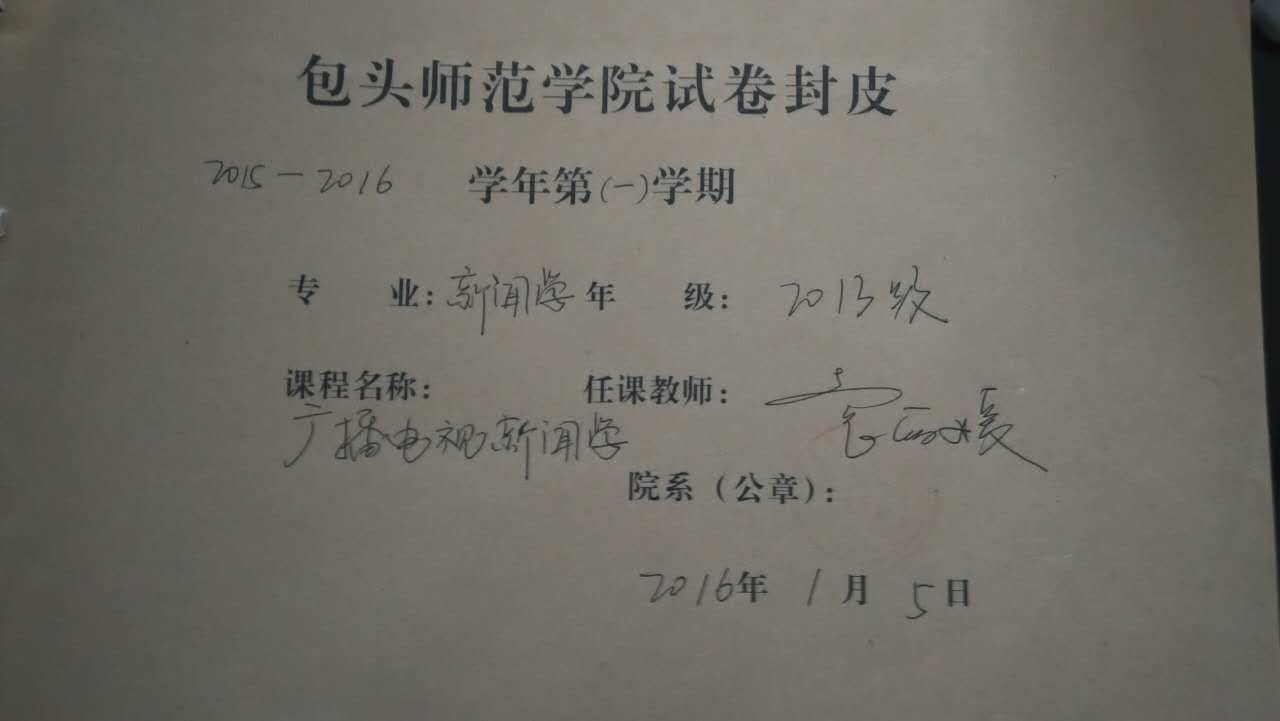 包头师范学院试卷封皮
2015-2016 学年第(一)学期
专 业: 新闻学 年 级: 2013级
课程名称: 任课教师:
广播电视新闻学
院系(公章):
2016年 1月 5日